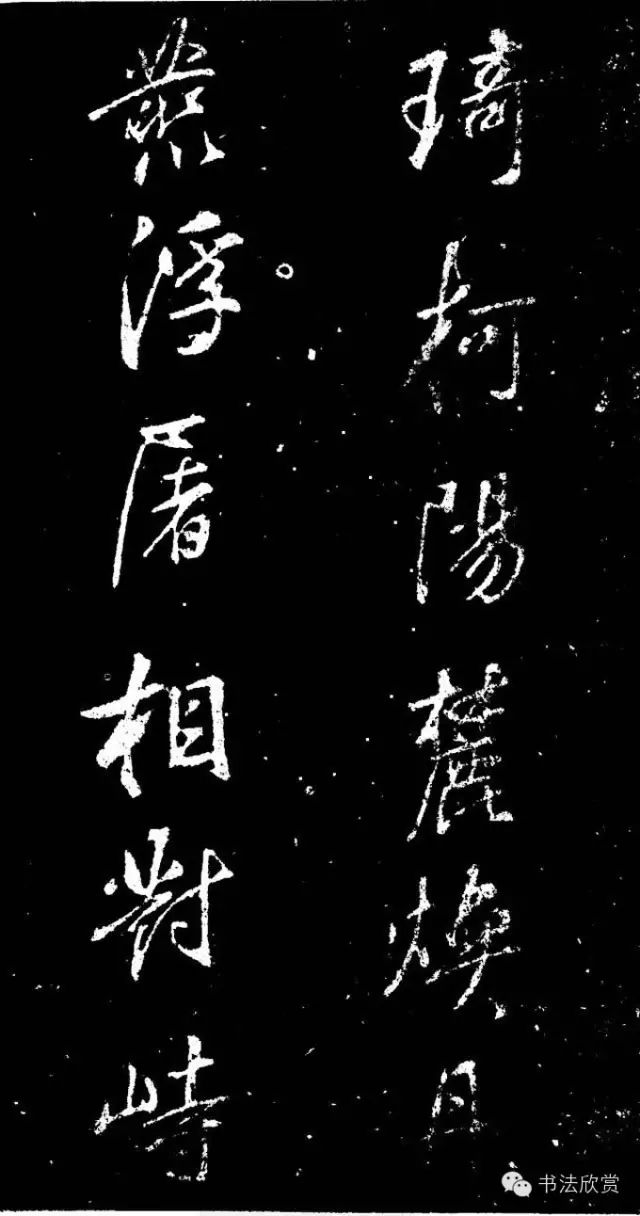 琦柯陽麓煥
叢浮屠相對峙
书法欣赏